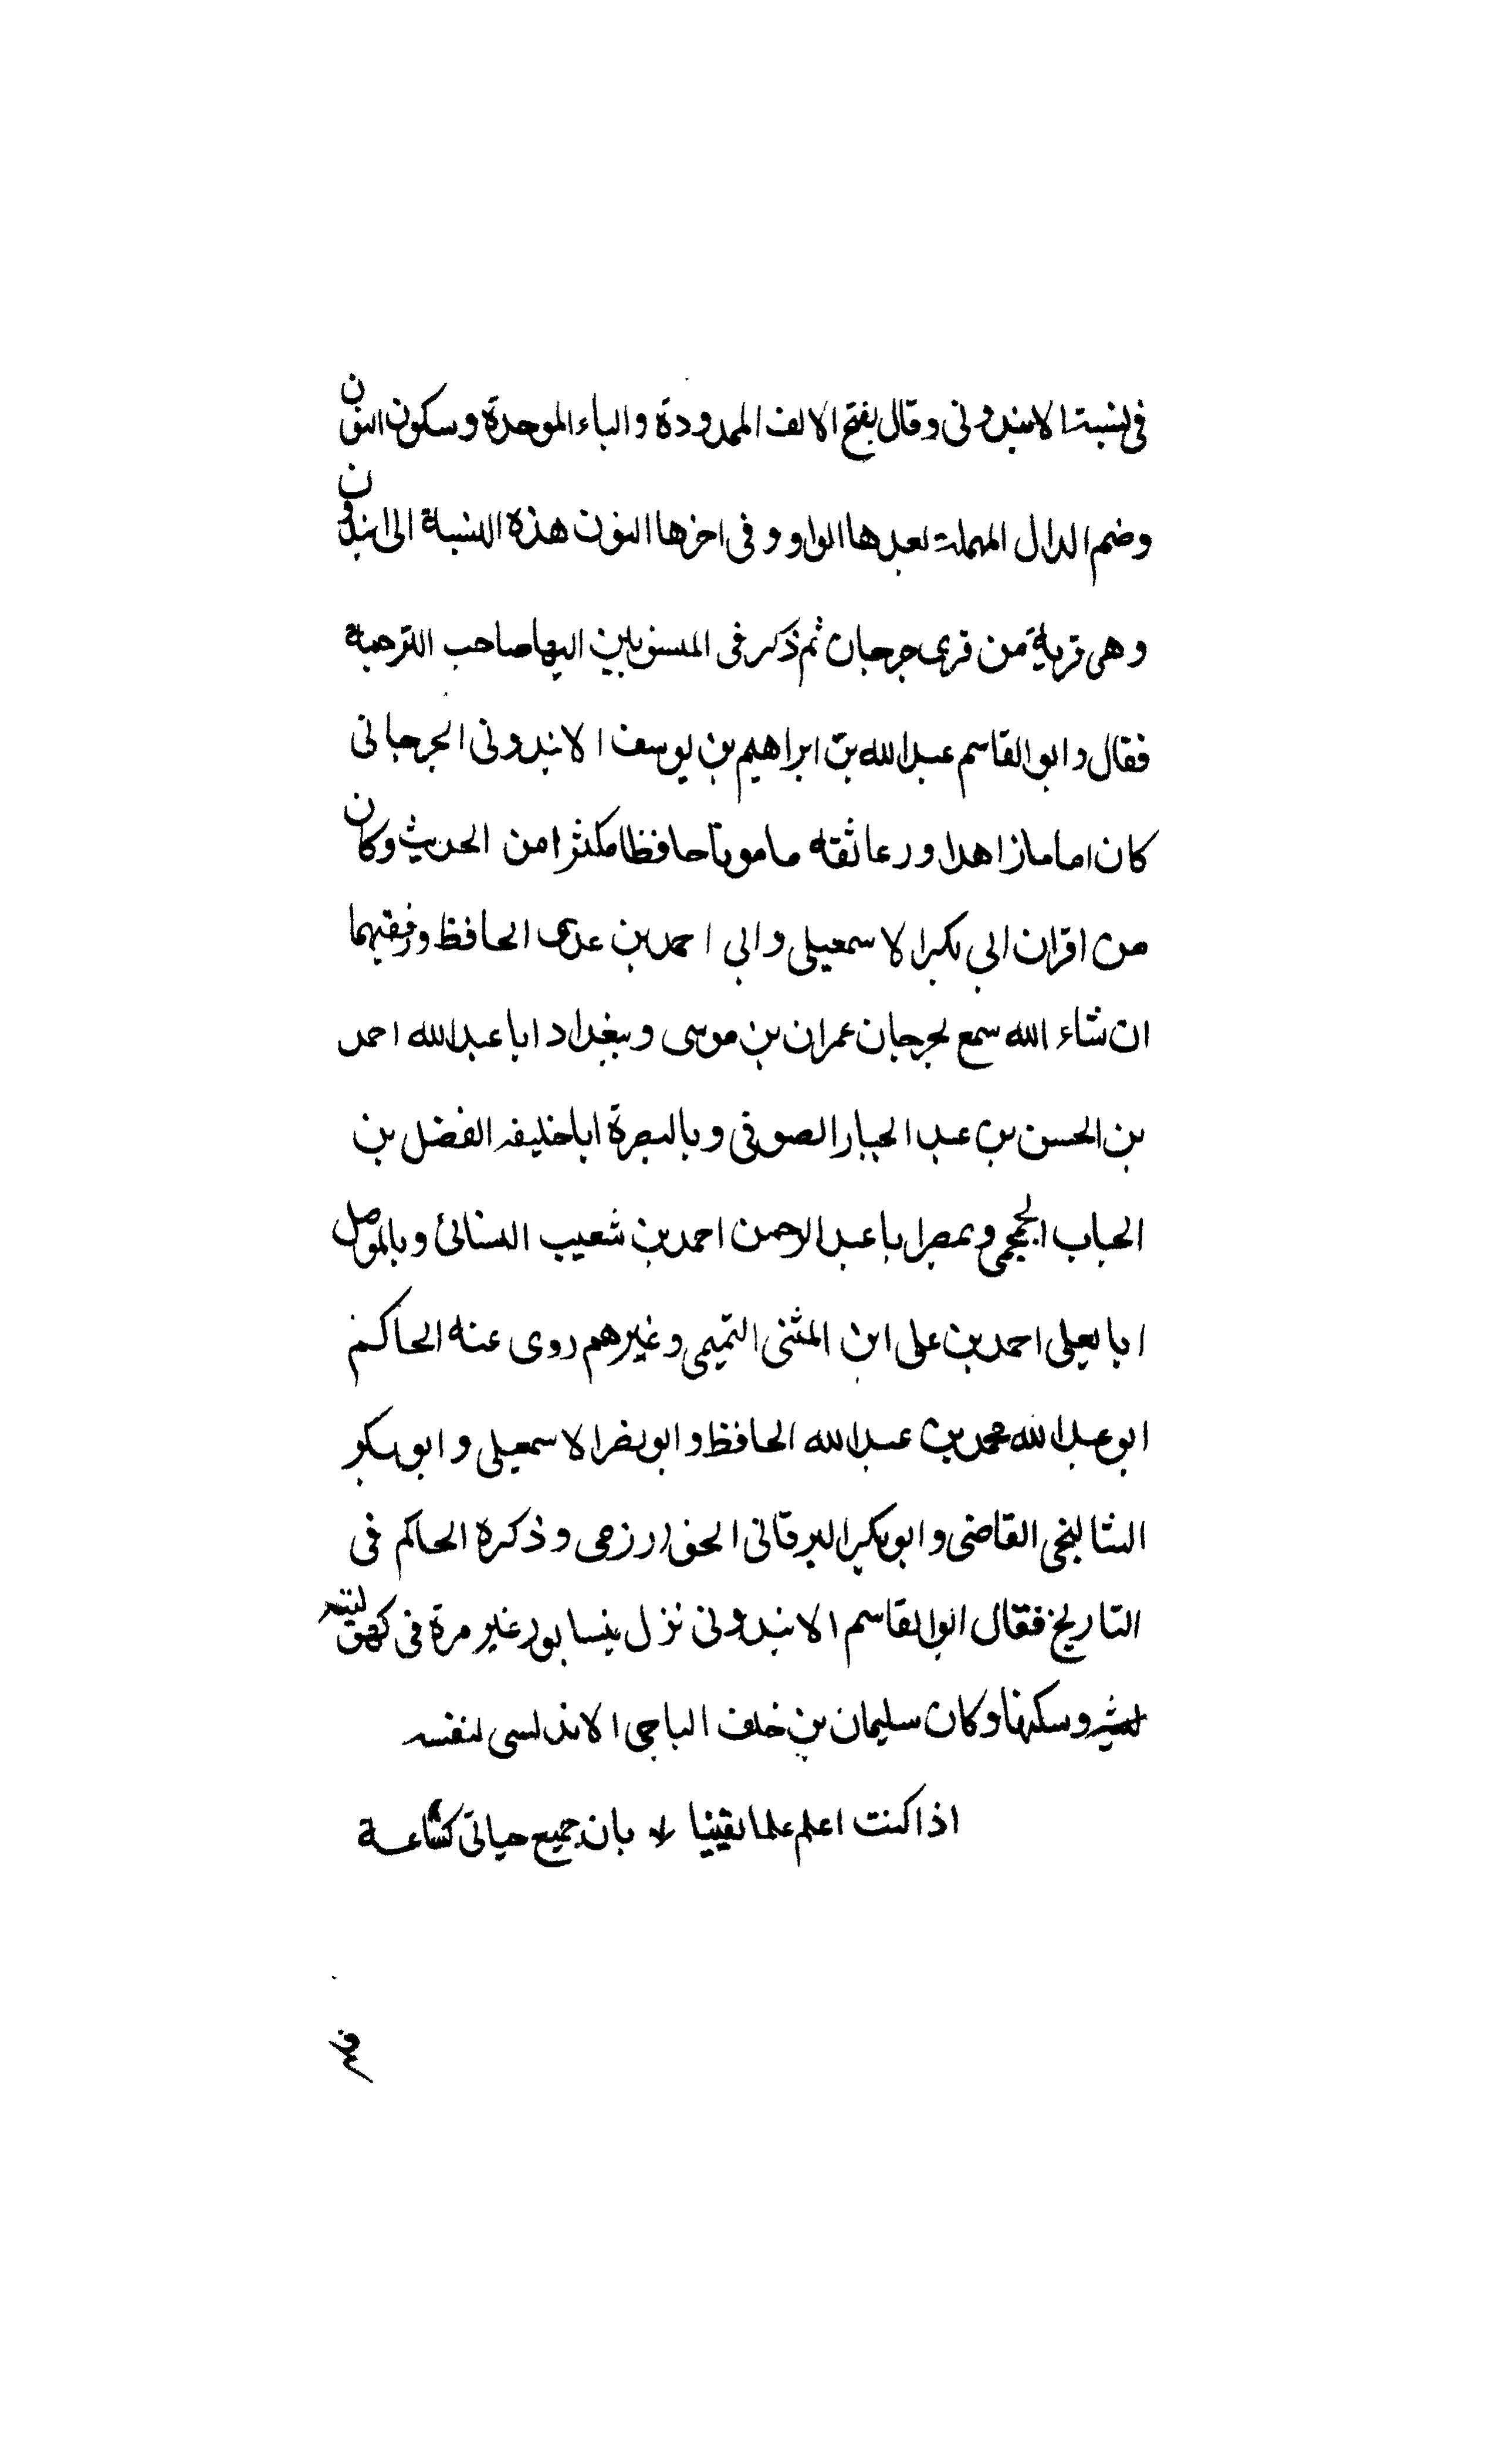 فى نسبة الابندونى وقال بفتح الالف الممدودة والباء الموحدة وسكون النون
وضم الدال المهملة بعدها الواو وفى اخرها النون هذه النسبة الى ابندون
وهى قرية من قرى جرجان ثم ذكر فى المنسوبين اليها صاحب الترجمة
فقال وابو القاسم عبد الله بن ابراهيم بن يوسف الابندونى الجرجانى
كان اماما زاهدا ورعا ثقه مامونا حافظا مكثرا من الحديث وكان
من اقران ابى بكر الاسمعيلى وابى احمد بن عدى الحافظ ورفيقهما
ان شاء الله سمع بجرجان عمران بن موسى وببغداد ابا عبد الله احمد
بن الحسن بن عبد الجبار الصوفى وبالبصرة ابا خليفه الفضل بن
الحباب الجمحى وبمصر ابا عبد الرحمن احمد بن شعيب النسائى وبالموصل
ابا يعلى احمد بن على ابن المثنى التميمى وغيرهم روى عنه الحاكم
ابو عبد الله محمد بن عبد الله الحافظ وابو نصر الاسمعيلى وابو بكر
الشالنجى القاضى وابو بكر البرقانى الخوارزمى وذكره الحاكم فى
التاريخ فقال ابو القاسم الابندونى نزل بنيسابور غير مرة فى كهولته
وسكنها وكان سليمان بن خلف الباجى الاندلسى لنفسه
اذا كنت اعلم علما يقينا بان جميع حياتى كساعة